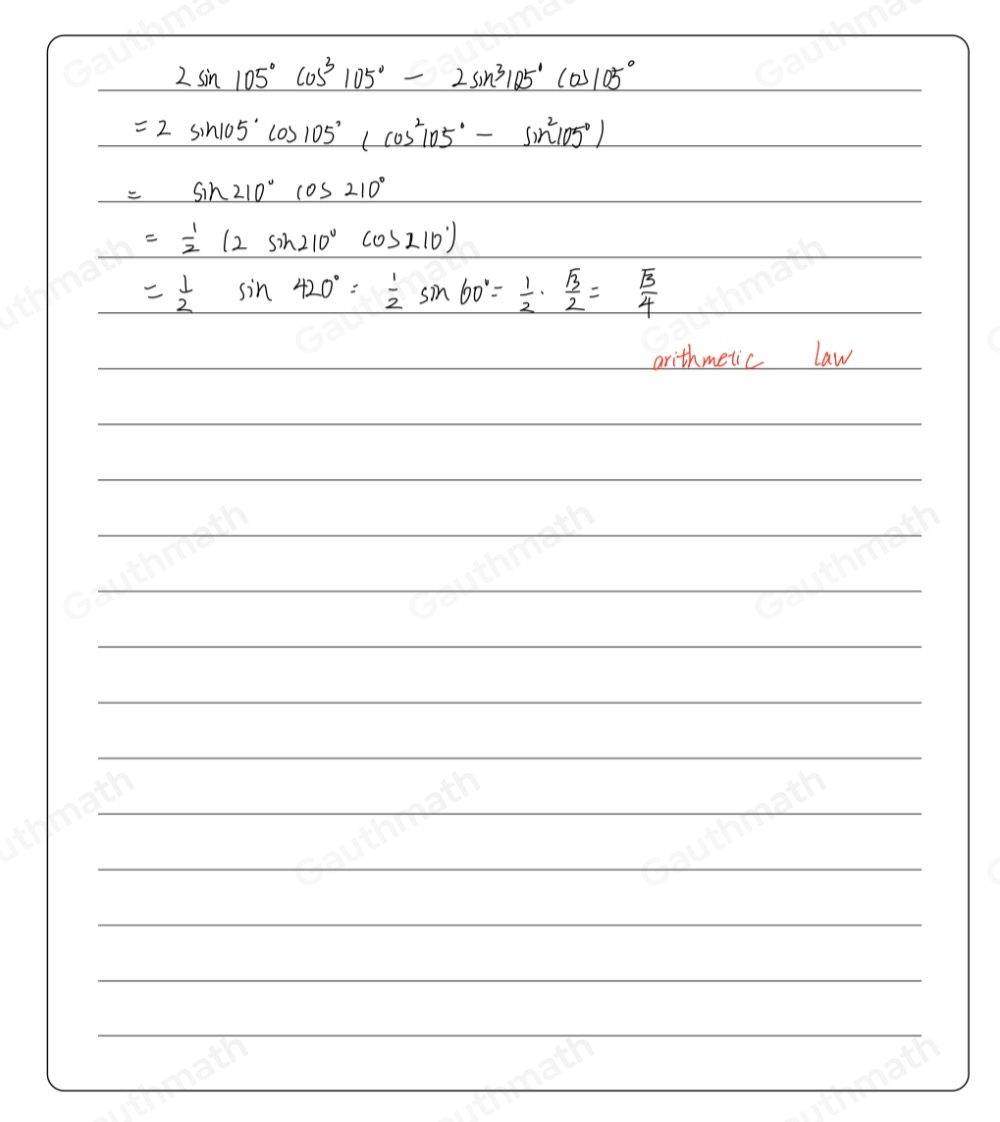 2 sin 105° cos³ 105° - 2 sin³ 105° cos 105°
= 2 sin105° cos 105° ( cos² 105° - sin² 105° )
= sin 210° cos 210°
= 1/2 (2 sin 210° cos 210°)
= 1/2 sin 420° = 1/2 sin 60° = 1/2 · √3/2 = √3/4
arithmetic law
Gauthmath